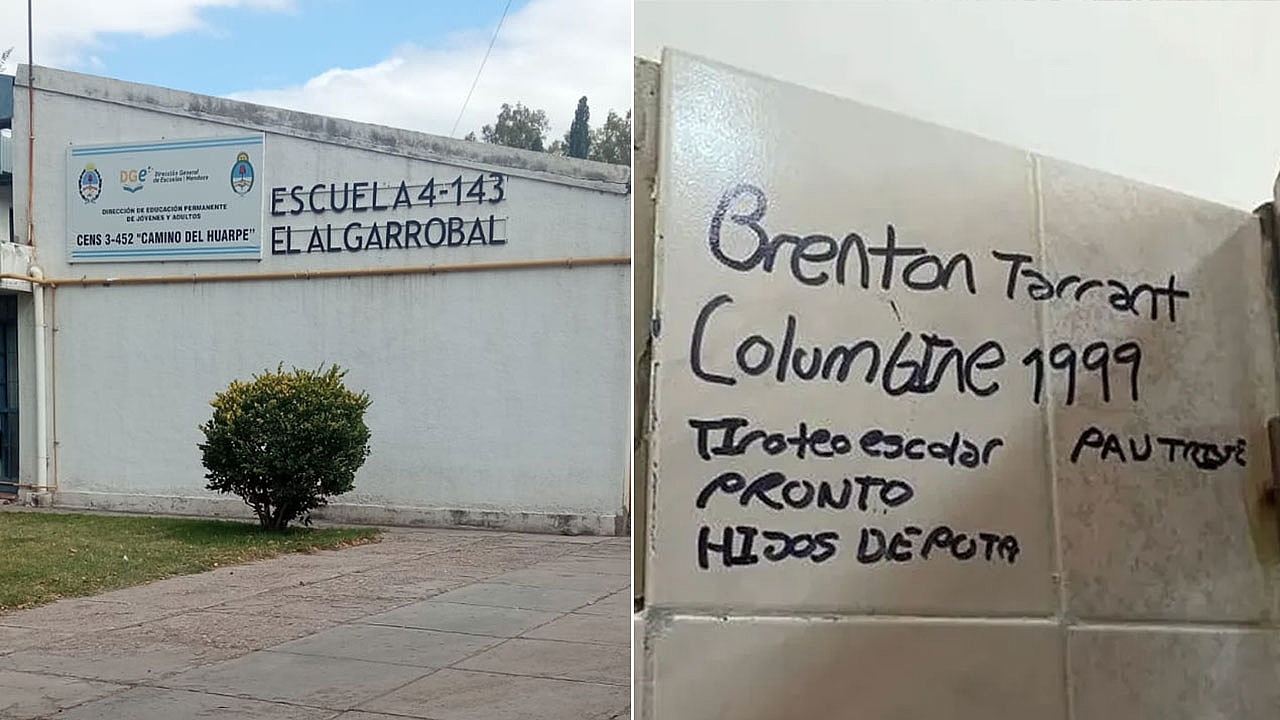 DGe
Dirección General
de Escuelas | Mendoza
DIRECCIÓN DE EDUCACIÓN PERMANENTE
DE JÓVENES Y ADULTOS
CENS 3-452 "CAMINO DEL HUARPE"
ESCUELA 4-143
EL ALGARROBAL
Brenton Tarrant
Columbine 1999
Tiroteo escolar
PRONTO
HIJOS DE PUTA
PAU